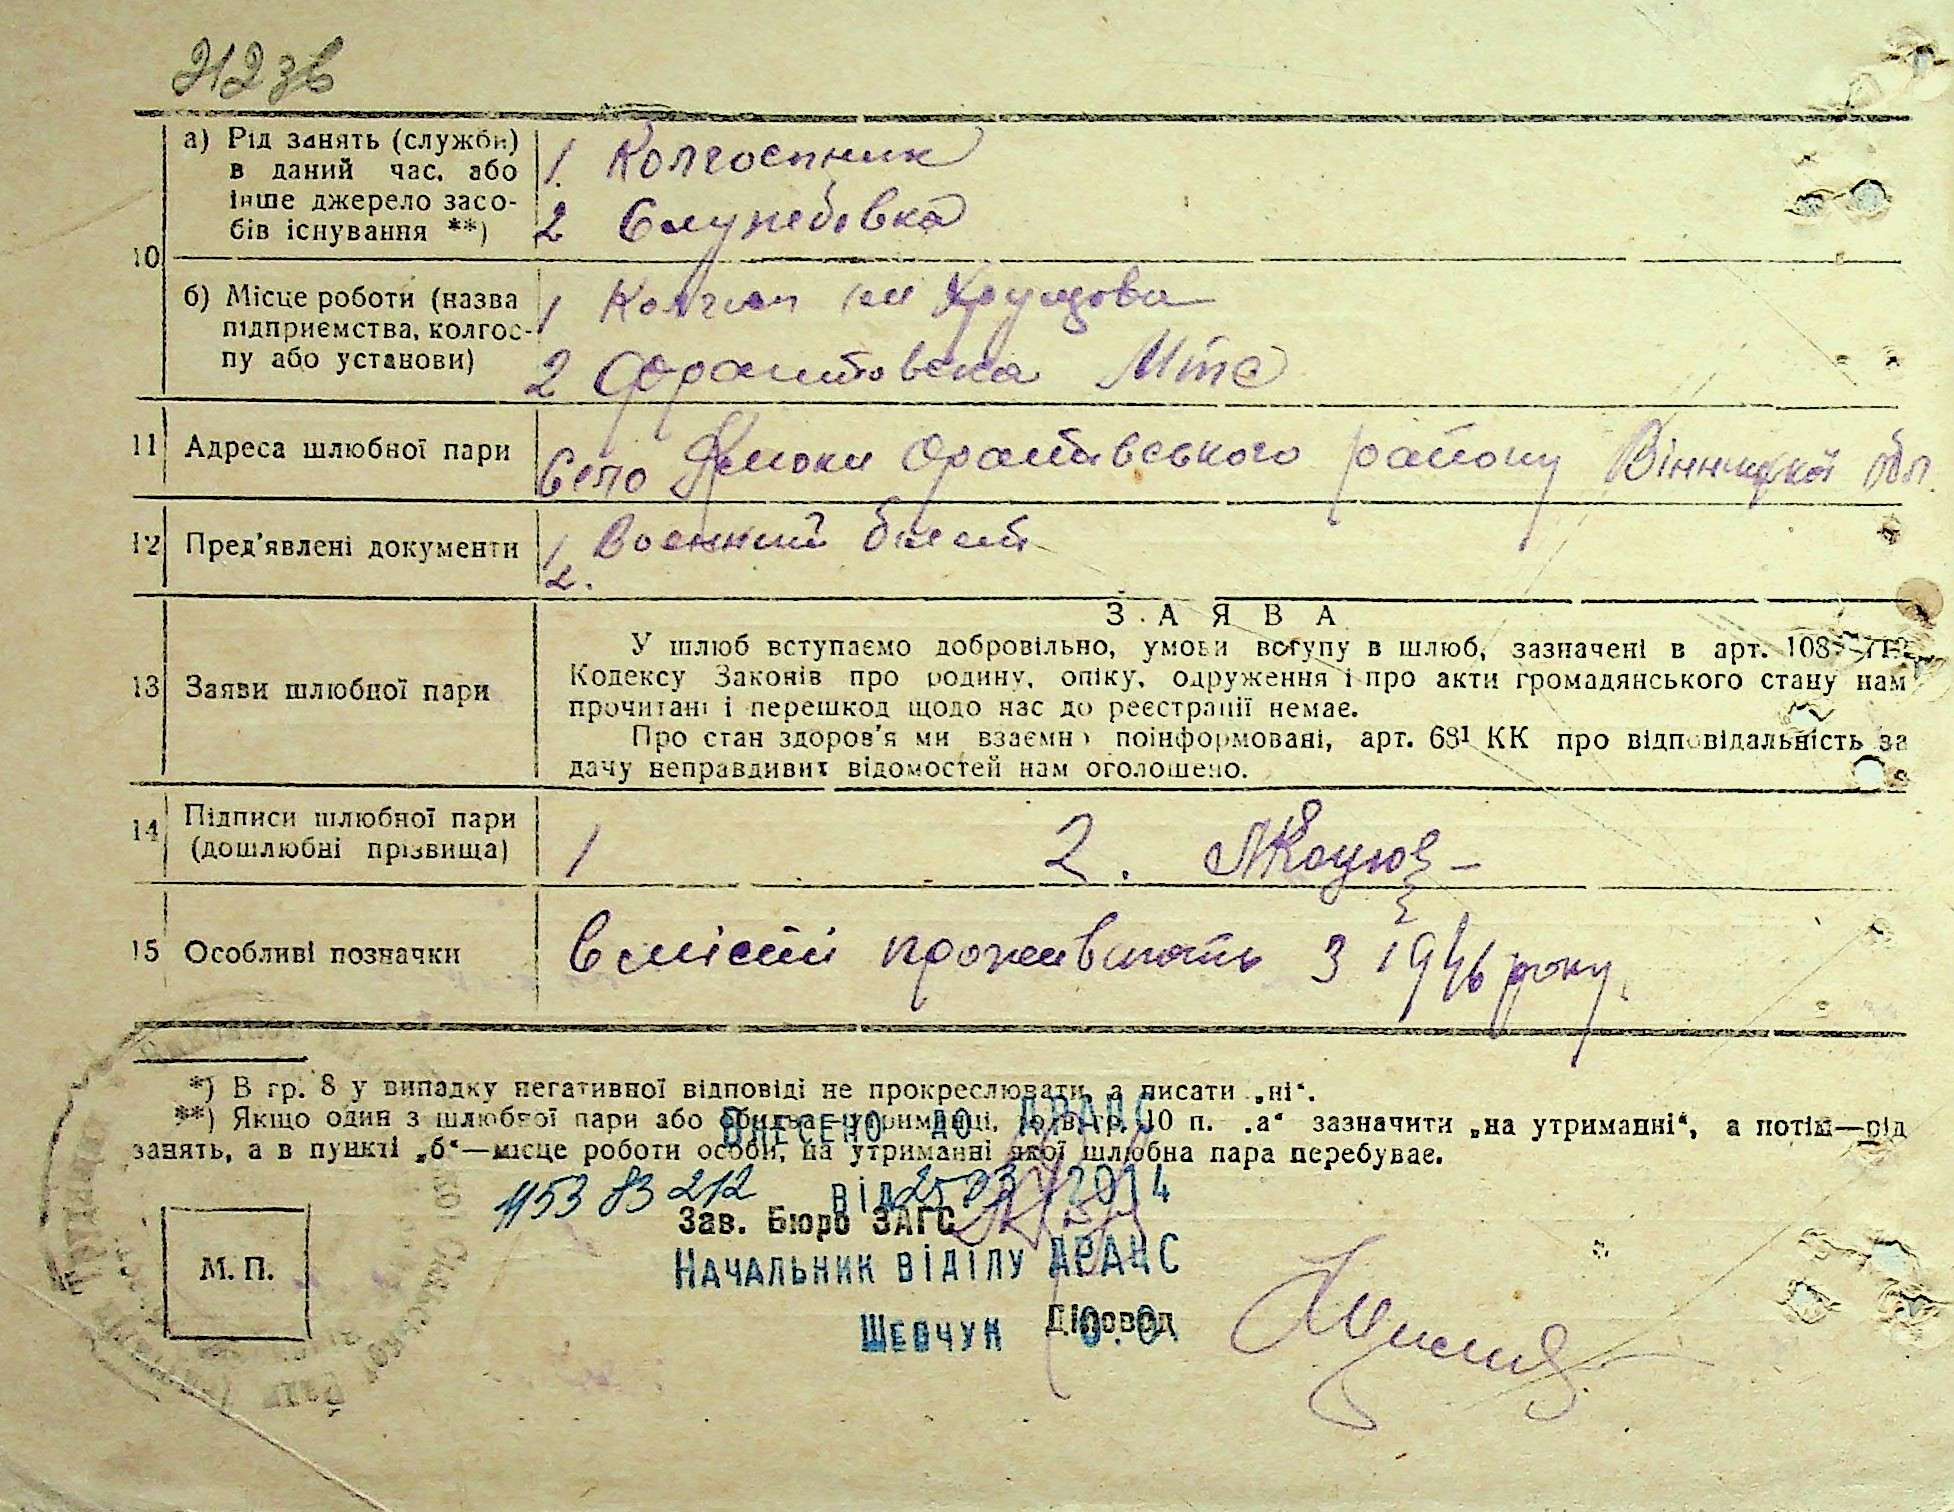 212 зв
10
а) Рід занять (служби)
в даний час, або
інше джерело засо-
бів існування **)
1. Колгоспник
2 Службовка
б) Місце роботи (назва
підприємства, колгос-
пу або установи)
1 Колгосп ім Хрущова
2 Оратовска МТС
11 Адреса шлюбної пари
Село Оратовського району Вінницкої обл.
12 Пред'явлені документи
1 Военний билет
2.
13 Заяви шлюбної пари
З А Я В А
У шлюб вступаємо добровільно, умови вступу в шлюб, зазначені в арт. 108—112
Кодексу Законів про родину, опіку, одруження і про акти громадянського стану нам
прочитані і перешкод щодо нас до реєстрації немає.
Про стан здоров'я ми взаємно поінформовані, арт. 68¹ КК про відповідальність за
дачу неправдивих відомостей нам оголошено.
14 Підписи шлюбної пари
(дошлюбні прізвища)
1 2.
15 Особливі позначки
Вмісті проживають з 1946 року.
*) В гр. 8 у випадку негативної відповіді не прокреслювати, а писати „ні“.
**) Якщо один з шлюбної пари або обидва—утриманці, то в гр. 10 п. „а“ зазначити „на утриманні“, а потім—рід
занять, а в пункті „б“—місце роботи особи, на утриманні якої шлюбна пара перебуває.
Внесено до ДРАЦС
115383212 від 2014
Зав. Бюро ЗАГС
М. П.
Начальник відділу ДРАЦС
Діловод
Шевчук О.О.